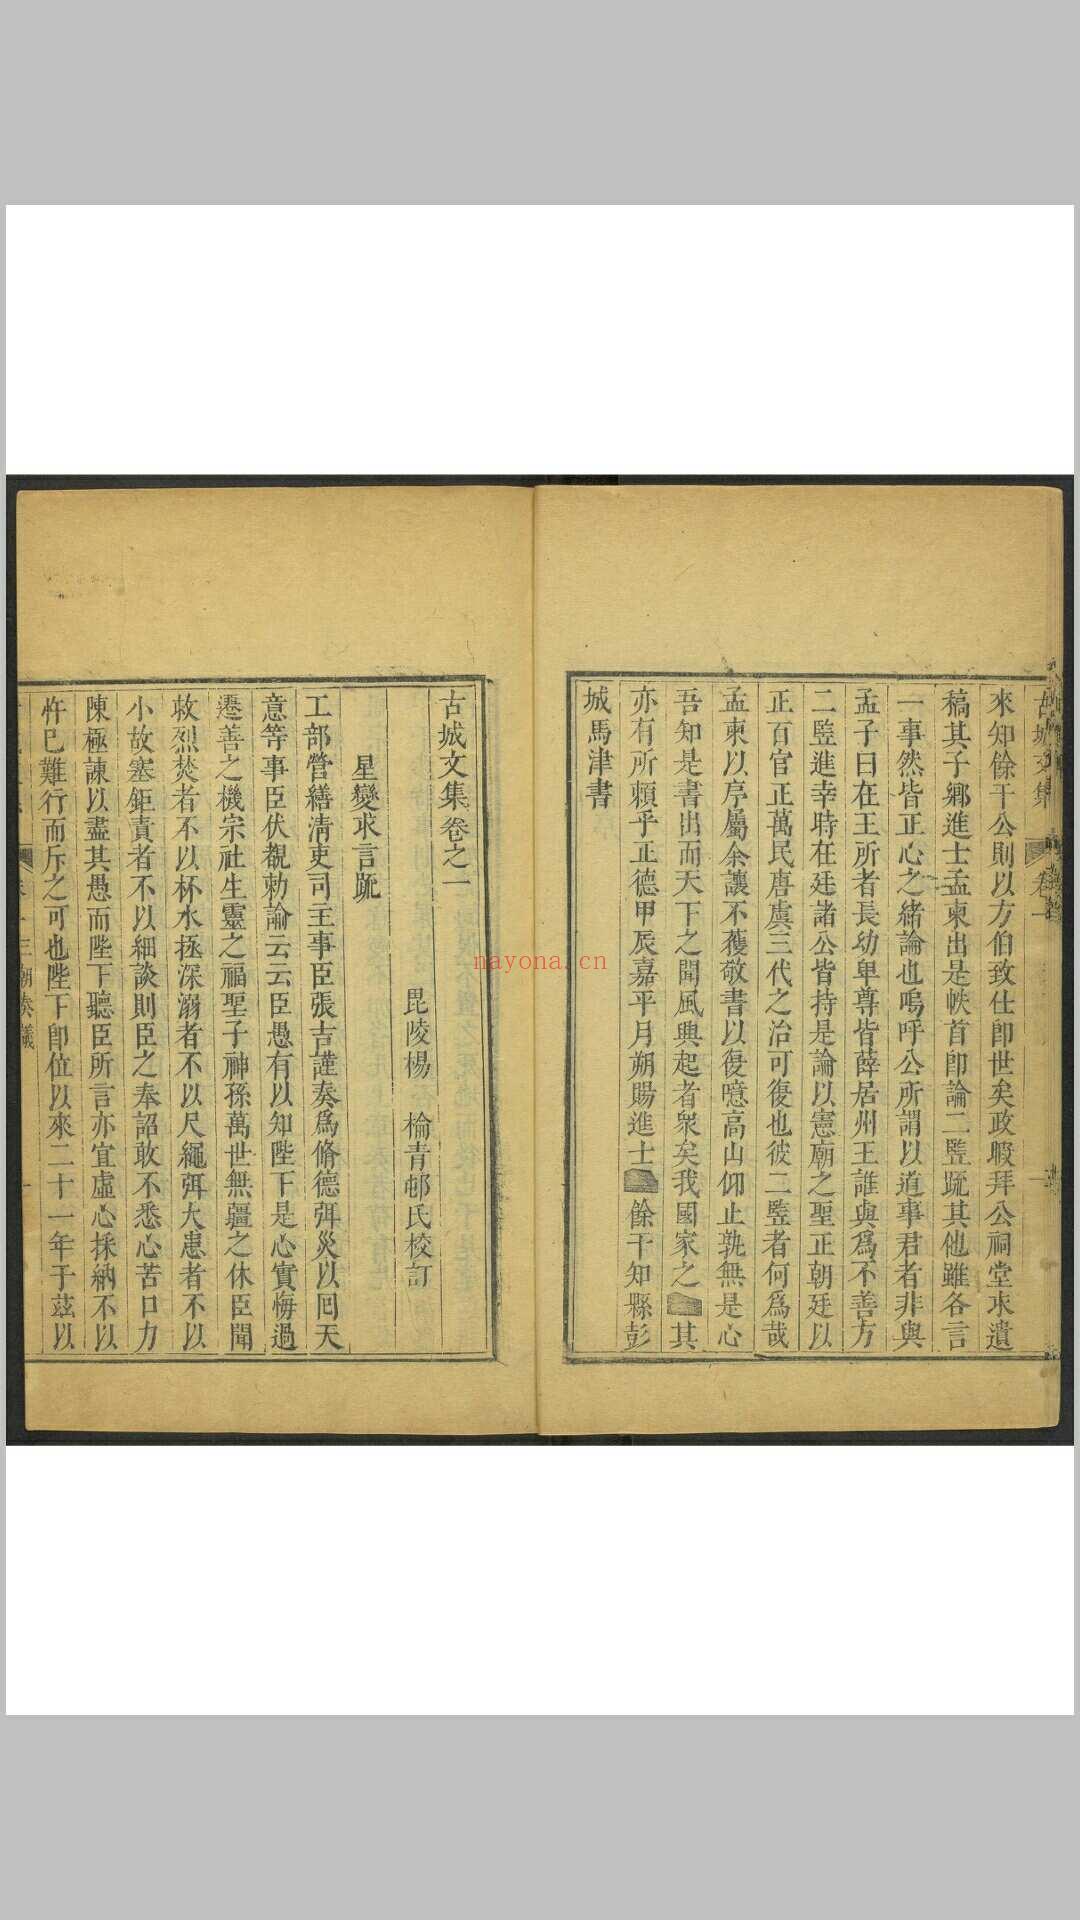 來知餘干公則以方伯致仕卽世矣政暇拜公祠堂求遺
稿其子鄉進士孟東出是帙首卽論二豎疏其他雖各言
一事然皆正心之緒論也嗚呼公所謂以道事君者非與
孟子曰在王所者長幼卑尊皆薛居州王誰與爲不善方
二豎進幸時在廷諸公皆持是論以憲廟之聖正朝廷以
正百官正萬民唐虞三代之治可復也彼二豎者何爲哉
孟東以序屬余讓不獲敬書以復噫高山仰止孰無是心
吾知是書出而天下之聞風興起者衆矣我國家之其
亦有所賴乎正德甲辰嘉平月朔賜進士餘干知縣彭
城馬津書
古城文集卷之一
毘陵楊 棆青邨氏校訂
星變求言疏
工部營繕淸吏司主事臣張吉謹奏爲脩德弭災以回天
意等事臣伏覩勅諭云云臣愚有以知陛下是心實悔過
遷善之機宗社生靈之福聖子神孫萬世無疆之休臣聞
救烈焚者不以杯水拯深溺者不以尺繩弭大患者不以
小故塞鉅責者不以細談則臣之奉詔敢不悉心苦口力
陳極諫以盡其愚而陛下聽臣所言亦宜虛心採納不以
忤已難行而斥之可也陛下卽位以來二十一年于茲以
nayona.cn